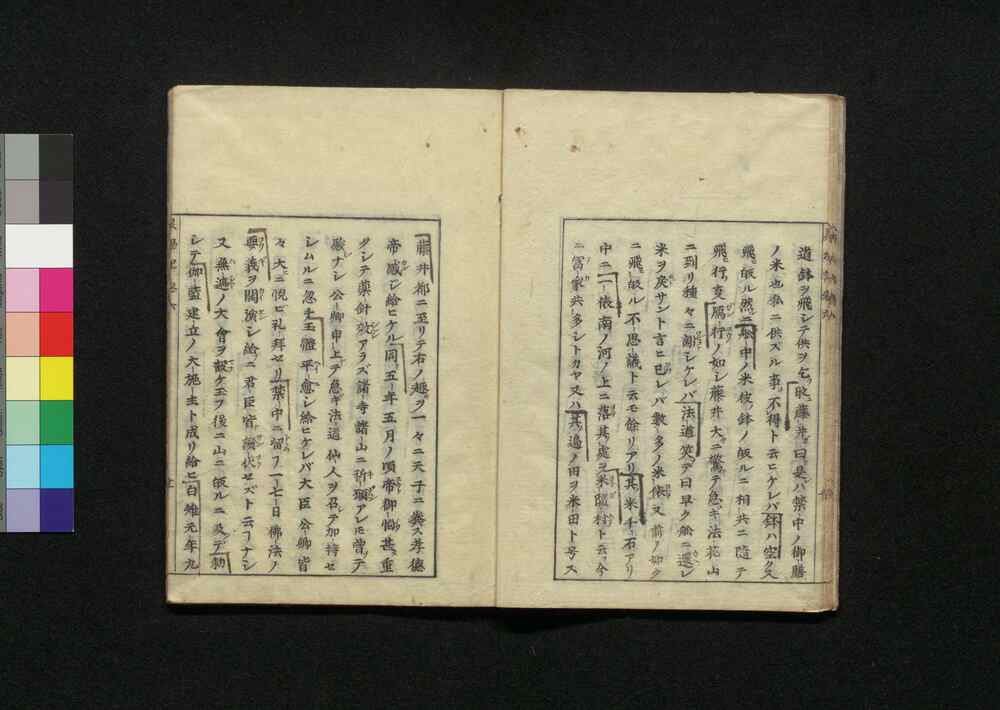 道鉢ヲ飛シテ供ヲ乞フ藤井カ曰是ハ禁中ノ御膳
ノ米也私ニ供ズル事不得ト云ヒケレバ鉢ハ空クス
飛皈ル然ニ舩中ノ米彼鉢ノ皈ルニ相共ニ隨テ
飛行事鴈行ノ如シ藤井大ニ驚テ急ギ法花山
ニ到リ種々ニ謝シケレバ法道笑テ曰早ク舩ニ還レ
米ヲ戾サント言ヒ已レバ數多ノ米俵又前ノ如ク
ニ飛皈ル不思議ト云モ餘リアリ其米千石アリ
中ニ一俵南ノ河ノ上ニ落其處ヲ米墮村ト云今
ニ冨家共多シトカヤ又ハ其邉ノ田ヲ米田ト号ス
藤井都ニ至リテ右ノ趣ヲ一々ニ天子ニ奏ス孝德
帝感シ給ヒケル同五年五月ノ頃帝御惱甚重
クシテ藥針效アラズ諸寺諸山ニ祈願アレモ曾テ
驗ナシ公卿申上テ急ギ法道仙人ヲ召テ加持セ
シムルニ忽チ玉體平愈シ給ヒケレバ大臣公卿皆
々大ニ悅ビ礼拜セリ禁中ニ留フ一七日佛法ノ
要義ヲ開演シ給ニ君臣皆歸伏セズト云フナシ
又無遮ノ大會ヲ設ケ玉フ後ニ山ニ皈ルニ及デ勅
シテ伽藍建立ノ大施主ト成リ給ヒ白雉元年九